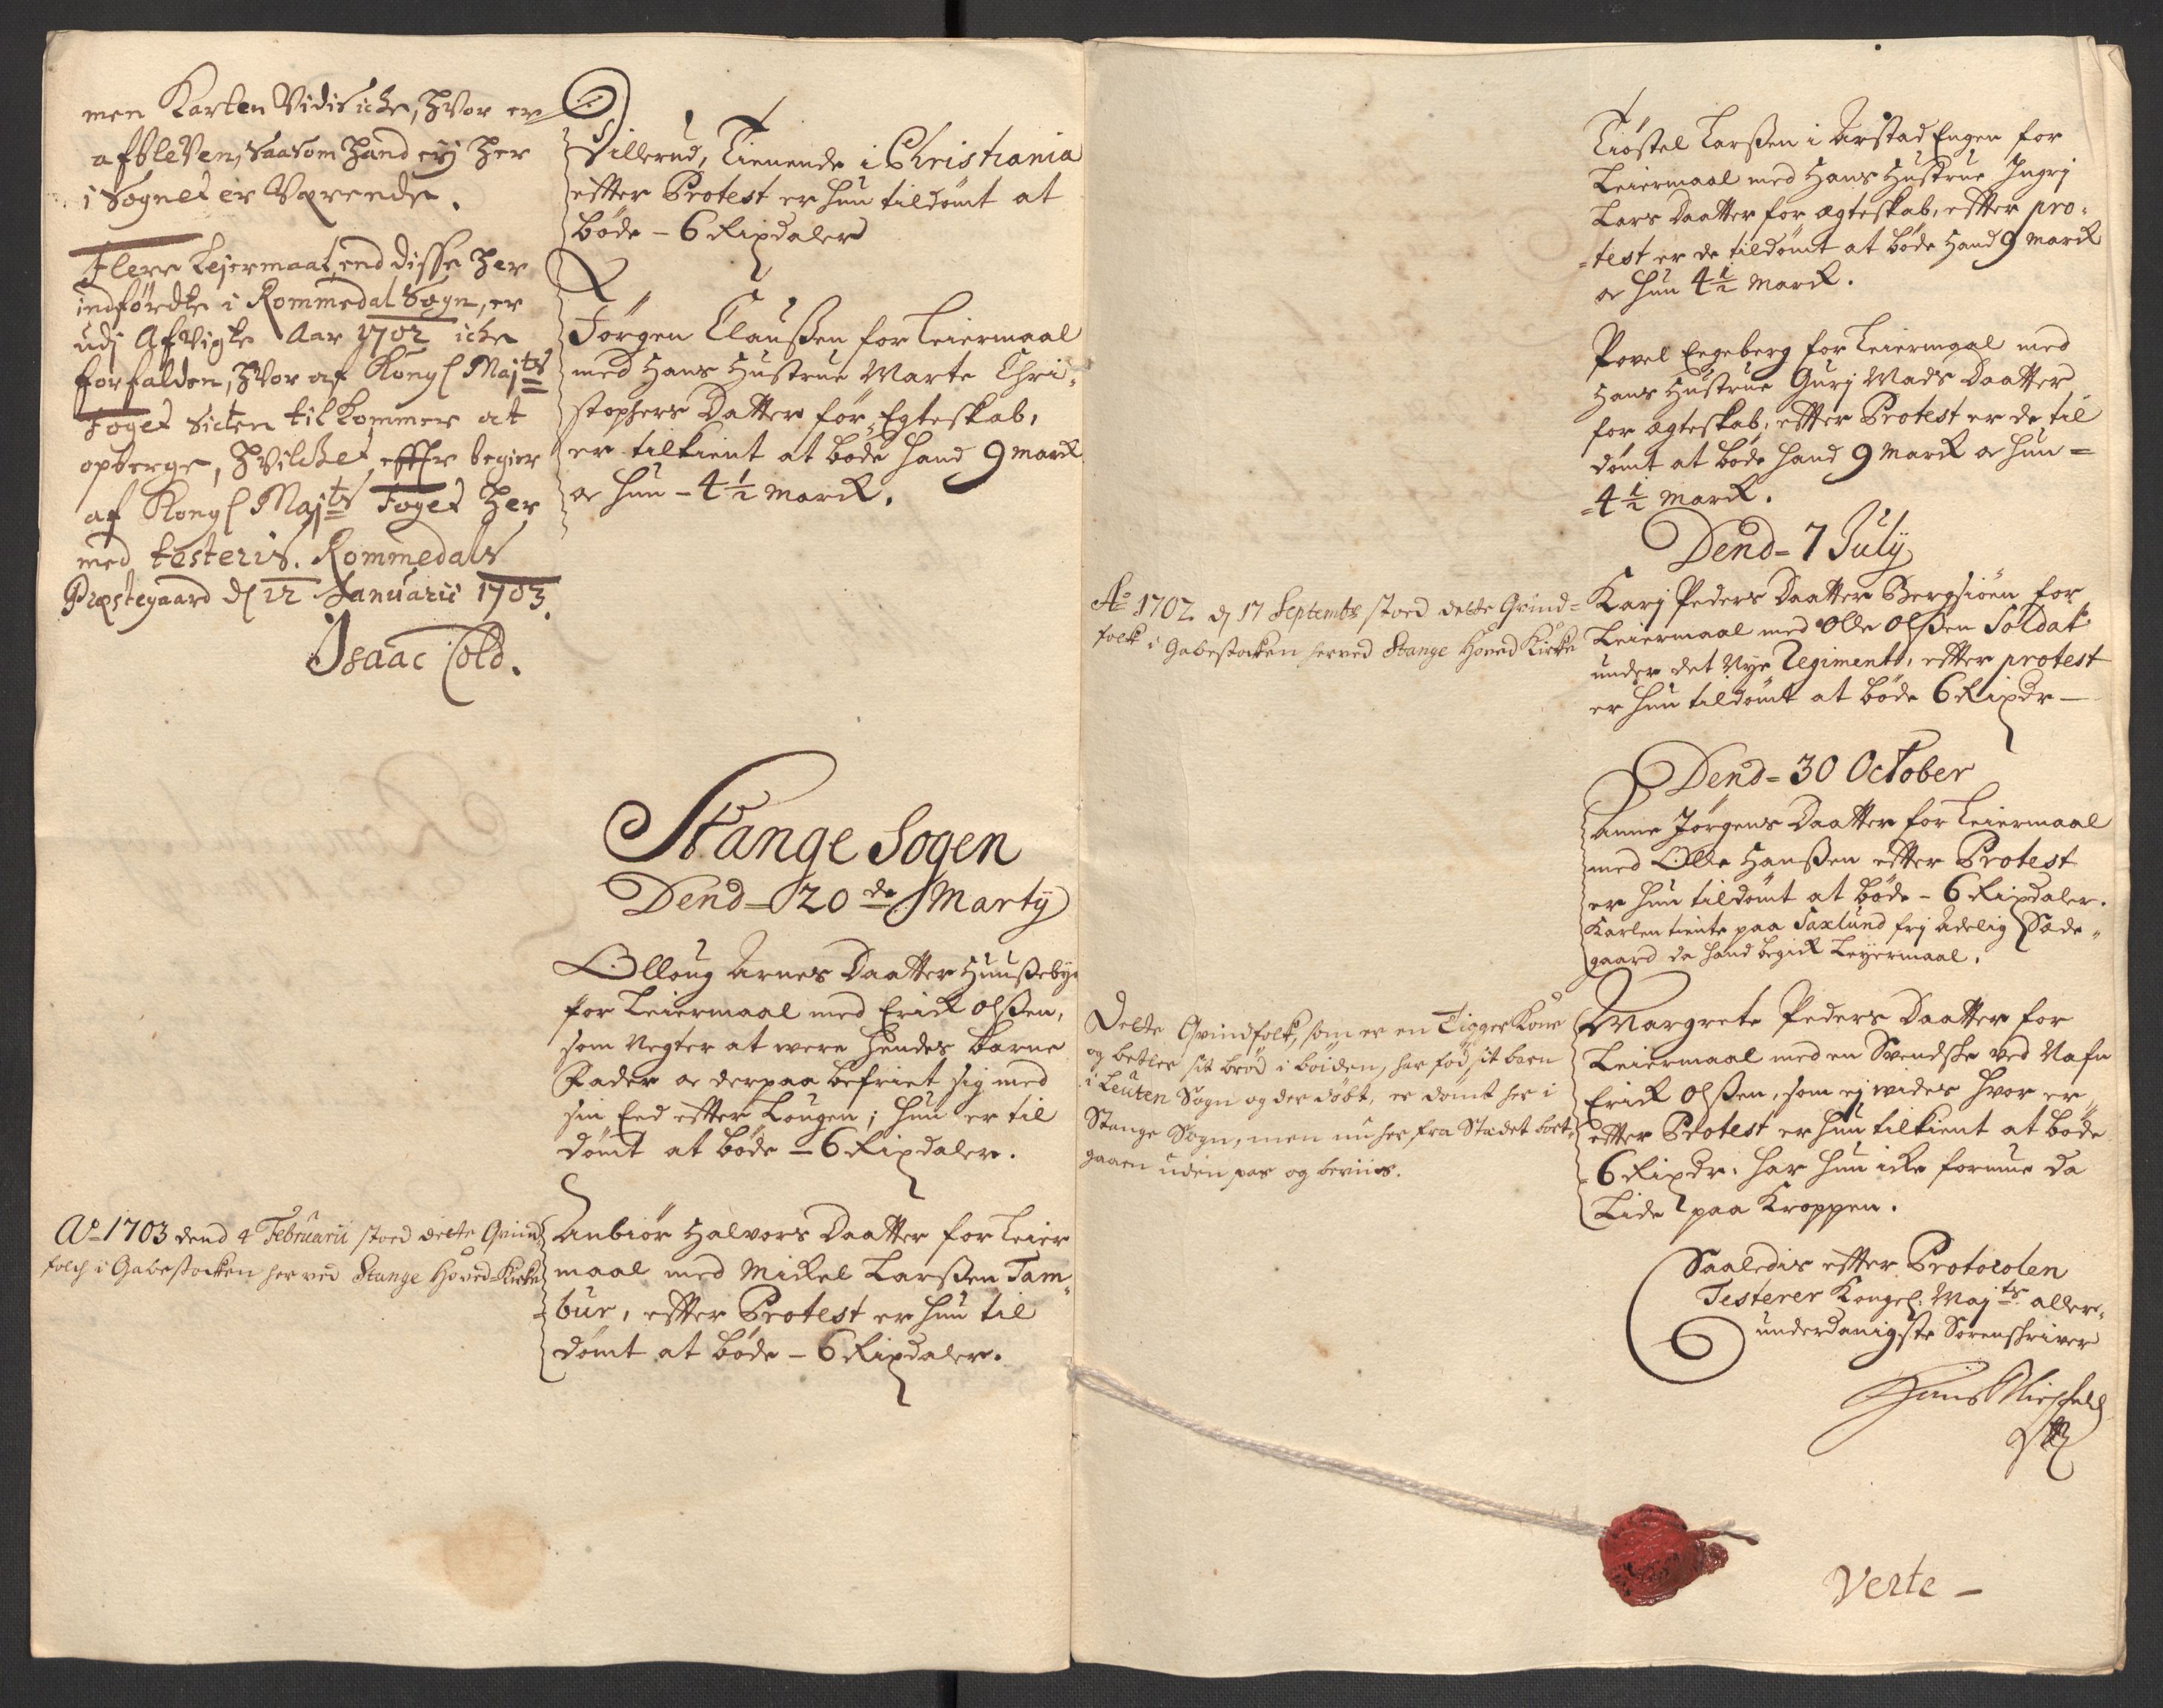 men Karlen Vidis iche, hvor er
afbleven, saasom hand eÿ her
i Sognet er Værende.
Flere Lejermaal end disse her
indførdte i Rommedal Sogn, er
udj Afvigte Aar 1702 iche
forfalden, hvor af Kongl Majts
Foget Sicten tilkommer at
opberge, hvilchet effter begier
af Kongl Majts Foget her
med testeris. Rommedals
Præstegaard d 22 Januarii 1703.
Isaac Cold.
A° 1703 dend 4 Februarii stoed dette Qvind
folch i Gabestocken her ved Stange Hoved Kirke
Sillerud, Tienende i Christiania
effter Protest er hun tildømt at
bøde - 6 Rixdaler
Jørgen Claussen for Leiermaal
med Hans Hustrue Marte Chri-
stophers Datter før Egteskab,
er tilkient at bøde hand 9 march
oc hun - 4 1/2 march.
Stange Sogen
Dend - 20de Martÿ
Olloug Arnes Daatter Huusseby
for Leiermaal med Erich Olssen,
som Negter at were hendes barne
Fader oc derpaa befriet sig med
sin Eed effter Lougen; hun er til
dømt at bøde - 6 Rixdaler.
Anbiør Halvors Daatter for Leier
maal med Michel Larssen Tam-
bur, effter Protest er hun til
dømt at bøde - 6 Rixdaler.
A° 1702 d 17 Septembr stoed dette Qvind-
folk i Gabestocken herved Stange Hoved Kirke
Dette Qvindfolk, som er en Tigger Kone
og betler sit brød i boiden, har fød sit barn
i Leuten Sogn og der døbt, er domt her i
Stange Sogn, men nu her fra Stædet bort-
gaaen uden pas og beviis.
Tiøstel Larssen i Arstad Engen for
Leiermaal med Hans Hustrue Ingrj
Lars Daatter for ægteskab, effter pro-
-test er de tildømt at bøde Hand 9 march
oc hun 4 1/2 march.
Povel Eegeberg for Leiermaal med
Hans Hustrue Gurj Mads Daatter
for ægteskab, effter Protest er de til
dømt at bøde hand 9 march oc hun -
- 4 1/2 march.
Dend - 7 Julÿ
Karj Peders Daatter Bergsiøen for
Leiermaal med Olle Olssen Soldat
under det Nye Regimente, effter protest
er hun tildømt at bøde 6 Rixdr -
Dend - 30 October
Anne Jørgens Daatter for Leiermaal
med Olle Hanssen effter Protest
er hun tildømt at bøde - 6 Rixdaler.
Karlen tiente paa Saxlund frj Adelig Sæde-
gaard da hand begick Leyermaal.
Margrete Peders Daatter for
Leiermaal med en Svendske ved Nafn
Erich Olssen, som ej wides hvor er,
effter Protest er hun tilkient at bøde
6 Rixdr: har hun icke formue da
Lide paa Kroppen.
Saaledis effter Protocolen
Testerer Kongel: Majts aller-
underdanigste Sorenschriver
Verte -